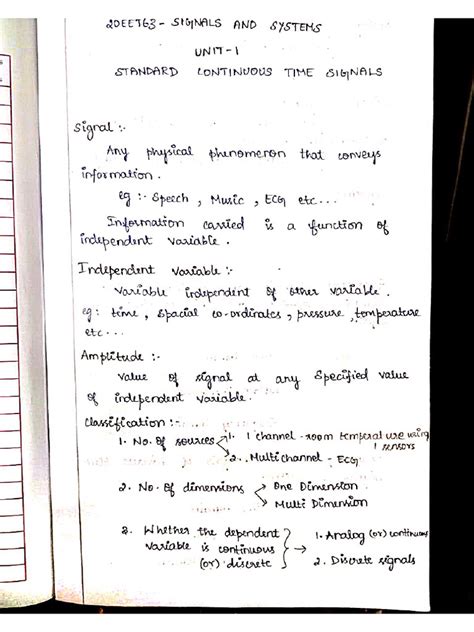 20EE763 - SIGNALS AND SYSTEMS
UNIT-1
STANDARD CONTINUOUS TIME SIGNALS
Signal :-
Any physical phenomeron that conveys
information.
eg :- Speech, Music, ECG etc...
Information carried is a function of
independent variable.
Independent variable :-
Variable independent of other variable.
eg: time, spacial co-ordinates, pressure, temperature
etc...
Amplitude :-
value of signal at any Specified value
of independent variable.
Classification :-
1. No. of sources 1. 1 channel - room temperature using
1 sensors
2. Multichannel - ECG
2. No. of dimensions One Dimension
Multi Dimension
3. Whether the dependent
variable is continuous
(or) discrete
1. Analog (or) continuous
2. Discrete signals